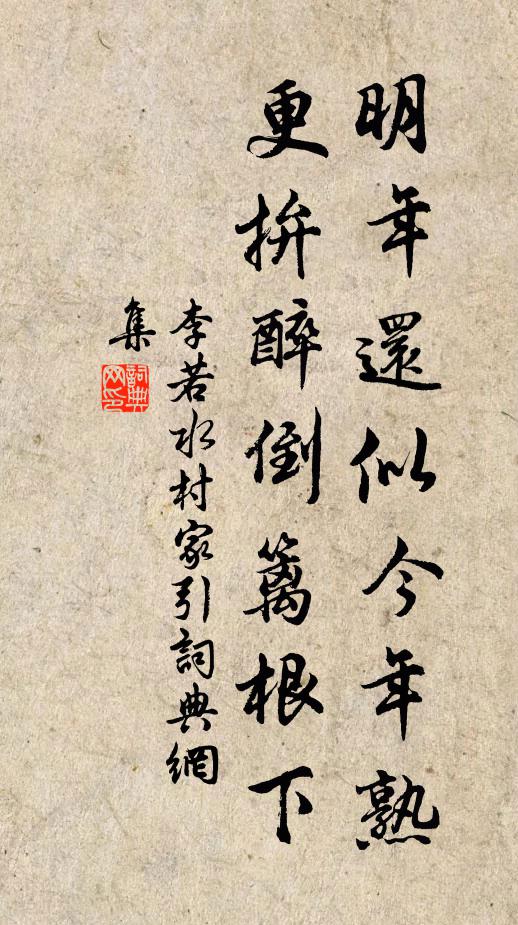 明年還似今年熟
更拚醉倒籬根下
李若水村家引詞典網
集
詞典
网印